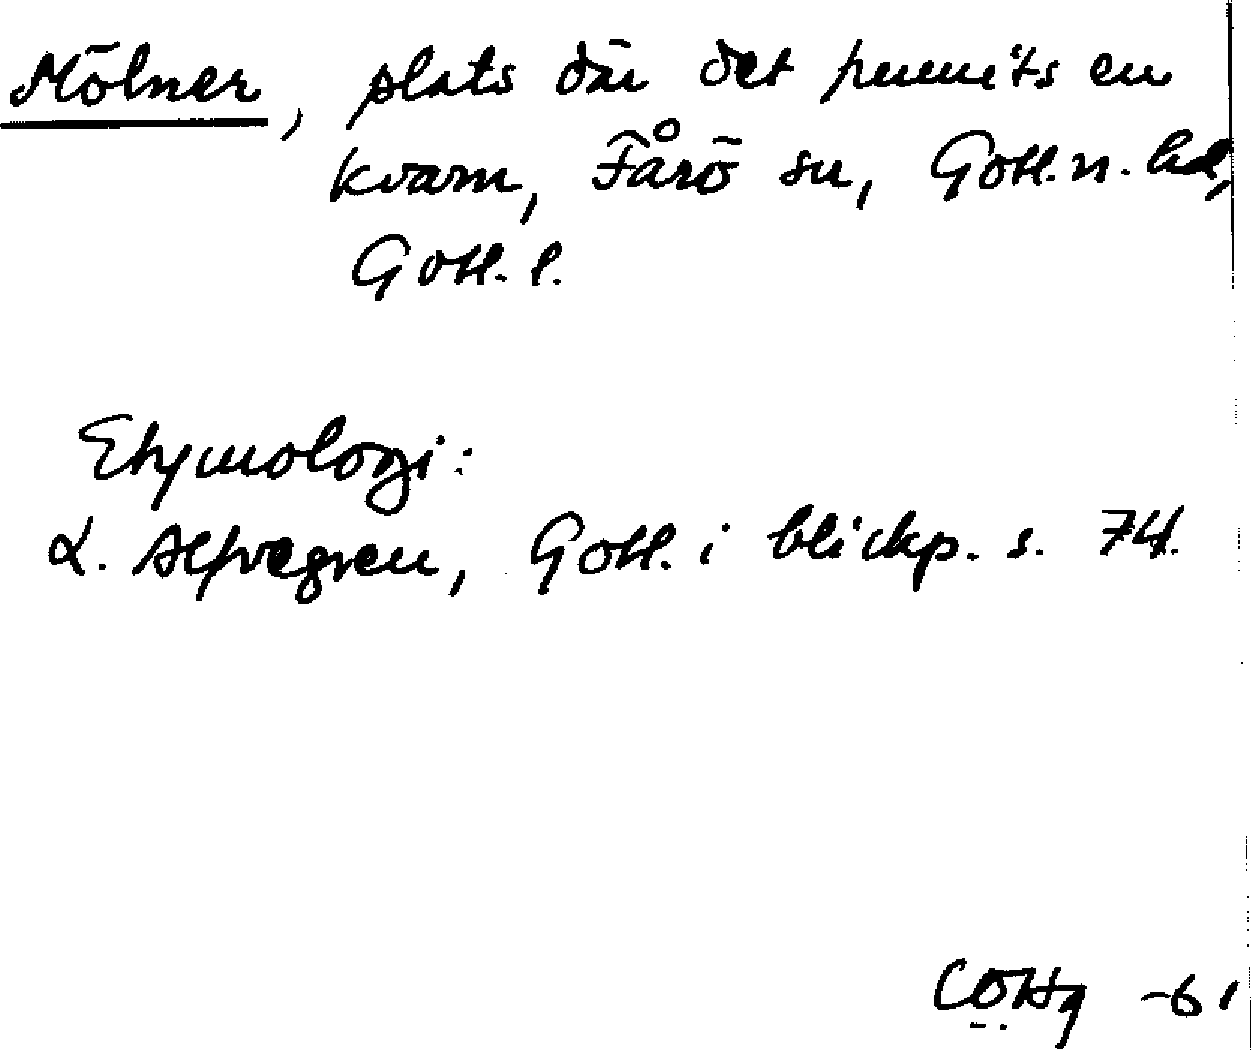 Mölner, plats där det funnits en
kvarn, Fårö sn, Gotl. n. hd,
Gotl. l.
Etymologi:
L. Alfvegren, Gotl. i blickp. s. 74.
-61